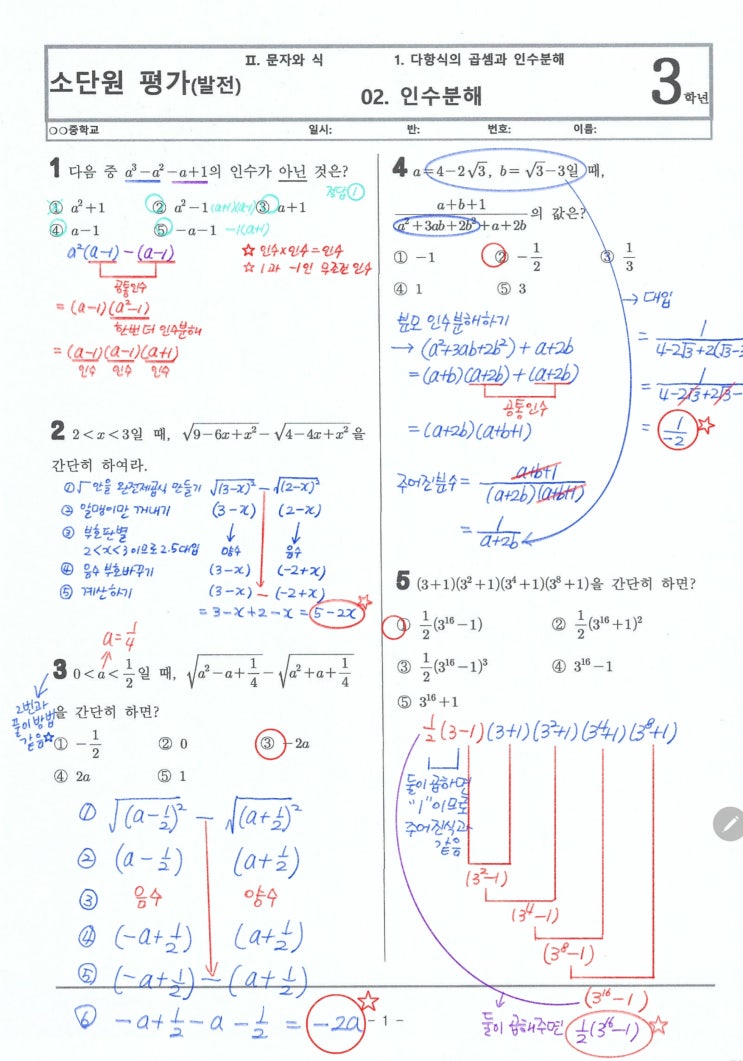 Ⅱ. 문자와 식
1. 다항식의 곱셈과 인수분해
소단원 평가(발전)
02. 인수분해
3학년
○○중학교 일시: 반: 번호: 이름:
1 다음 중 a³−a²−a+1의 인수가 아닌 것은?
정답 ①
① a²+1 ② a²−1 (a+1)(a-1) ③ a+1
④ a−1 ⑤ −a−1 -1(a+1)
a²(a-1) - (a-1)
☆ 인수×인수=인수
☆ 1과 -1인 무조건 인수
공통인수
= (a-1)(a²-1)
한번 더 인수분해
= (a-1)(a-1)(a+1)
인수 인수 인수
2 2<x<3일 때, √(9−6x+x²) − √(4−4x+x²) 을
간단히 하여라.
① √ 안을 완전제곱식 만들기 √(3-x)² - √(2-x)²
② 알맹이만 꺼내기 (3-x) (2-x)
③ 부호판별
2<x<3이므로 2.5대입 양수 음수
④ 음수 부호바꾸기 (3-x) (-2+x)
⑤ 계산하기 (3-x) - (-2+x)
= 3-x+2-x = 5-2x ☆
a=1/4
3 0<a<1/2일 때, √(a²−a+1/4) − √(a²+a+1/4)
을 간단히 하면?
2번과
풀이방법
같음☆
① −1/2 ② 0 ③ −2a
④ 2a ⑤ 1
① √(a-1/2)² - √(a+1/2)²
② (a-1/2) (a+1/2)
③ 음수 양수
④ (-a+1/2) (a+1/2)
⑤ (-a+1/2) - (a+1/2)
⑥ -a+1/2-a-1/2 = -2a ☆
4 a=4−2√3, b=√3−3일 때,
(a+b+1)/(a²+3ab+2b²+a+2b)의 값은?
① −1 ② −1/2 ③ 1/3
④ 1 ⑤ 3
분모 인수분해하기
→ (a²+3ab+2b²)+a+2b
= (a+b)(a+2b)+(a+2b)
공통인수
= (a+2b)(a+b+1)
주어진분수 = (a+b+1)/((a+2b)(a+b+1))
= 1/(a+2b)
→ 대입
= 1/(4-2√3+2(√3-3
= 1/(4-2√3+2√3-
= 1/-2 ☆
5 (3+1)(3²+1)(3⁴+1)(3⁸+1)을 간단히 하면?
① 1/2(3¹⁶−1) ② 1/2(3¹⁶+1)²
③ 1/2(3¹⁶−1)³ ④ 3¹⁶−1
⑤ 3¹⁶+1
1/2(3-1)(3+1)(3²+1)(3⁴+1)(3⁸+1)
둘이 곱하면
"1"이므로
주어진식과
같음
(3²-1)
(3⁴-1)
(3⁸-1)
(3¹⁶-1)
둘이 곱해주면 1/2(3¹⁶-1) ☆
- 1 -